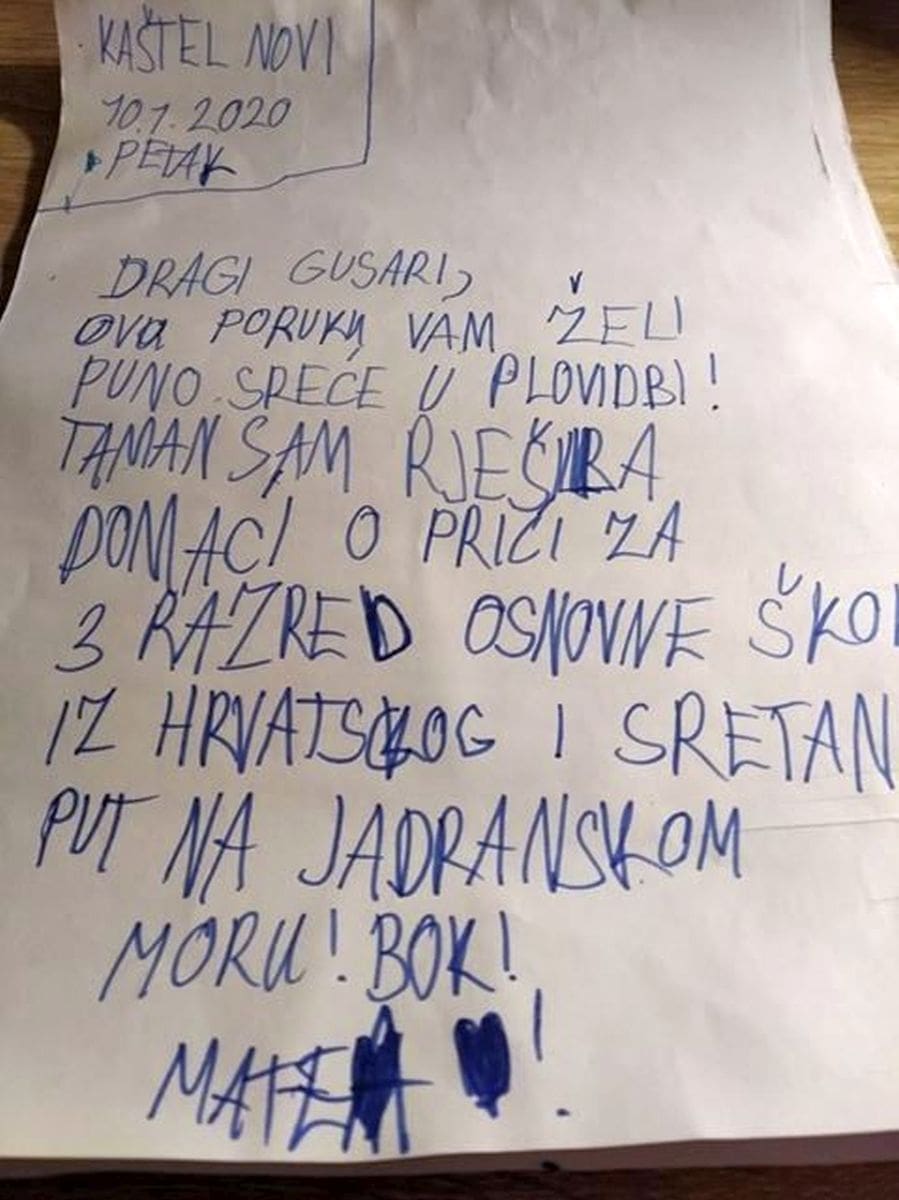 KAŠTEL NOVI
10.1.2020
PETAK
DRAGI GUSARI,
OVA PORUKU VAM ŽELI
PUNO SREĆE U PLOVIDBI!
TAMAN SAM
DOMAĆI O PRIČI ZA
3 RAZRED OSNOVNE ŠKOL
IZ HRVATSKOG I SRETAN
PUT NA JADRANSKOM
MORU! BOK!
MATEA !